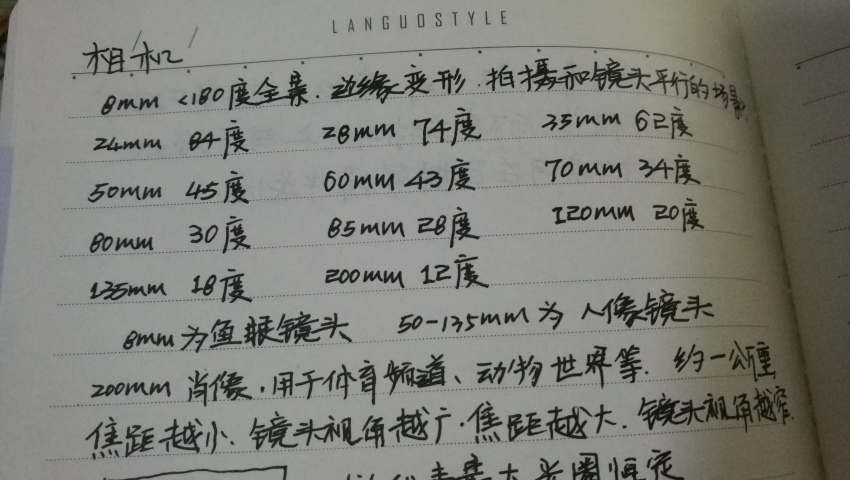 LANGUOSTYLE
相机
8mm <180度全景.边缘变形.拍摄和镜头平行的场景
24mm 84度 28mm 74度 35mm 62度
50mm 45度 60mm 43度 70mm 34度
80mm 30度 85mm 28度 120mm 20度
135mm 18度 200mm 12度
8mm为鱼眼镜头 50-135mm为人像镜头
200mm肖像.用于体育频道、动物世界等. 约一公里
焦距越小.镜头视角越广.焦距越大.镜头视角越窄.
大光圈恒定